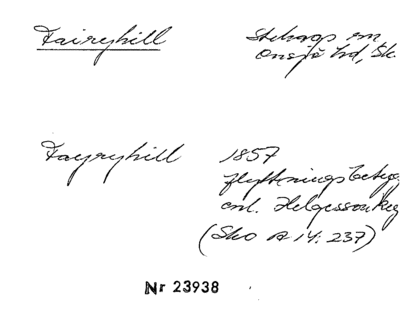 Fairyhill
Stehags sn
Onsjö hd, Sk.
Fayryhill 1857
flyttningsbetyg
enl. Helgesson Reg
(Sko A 14: 237)
Nr 23938